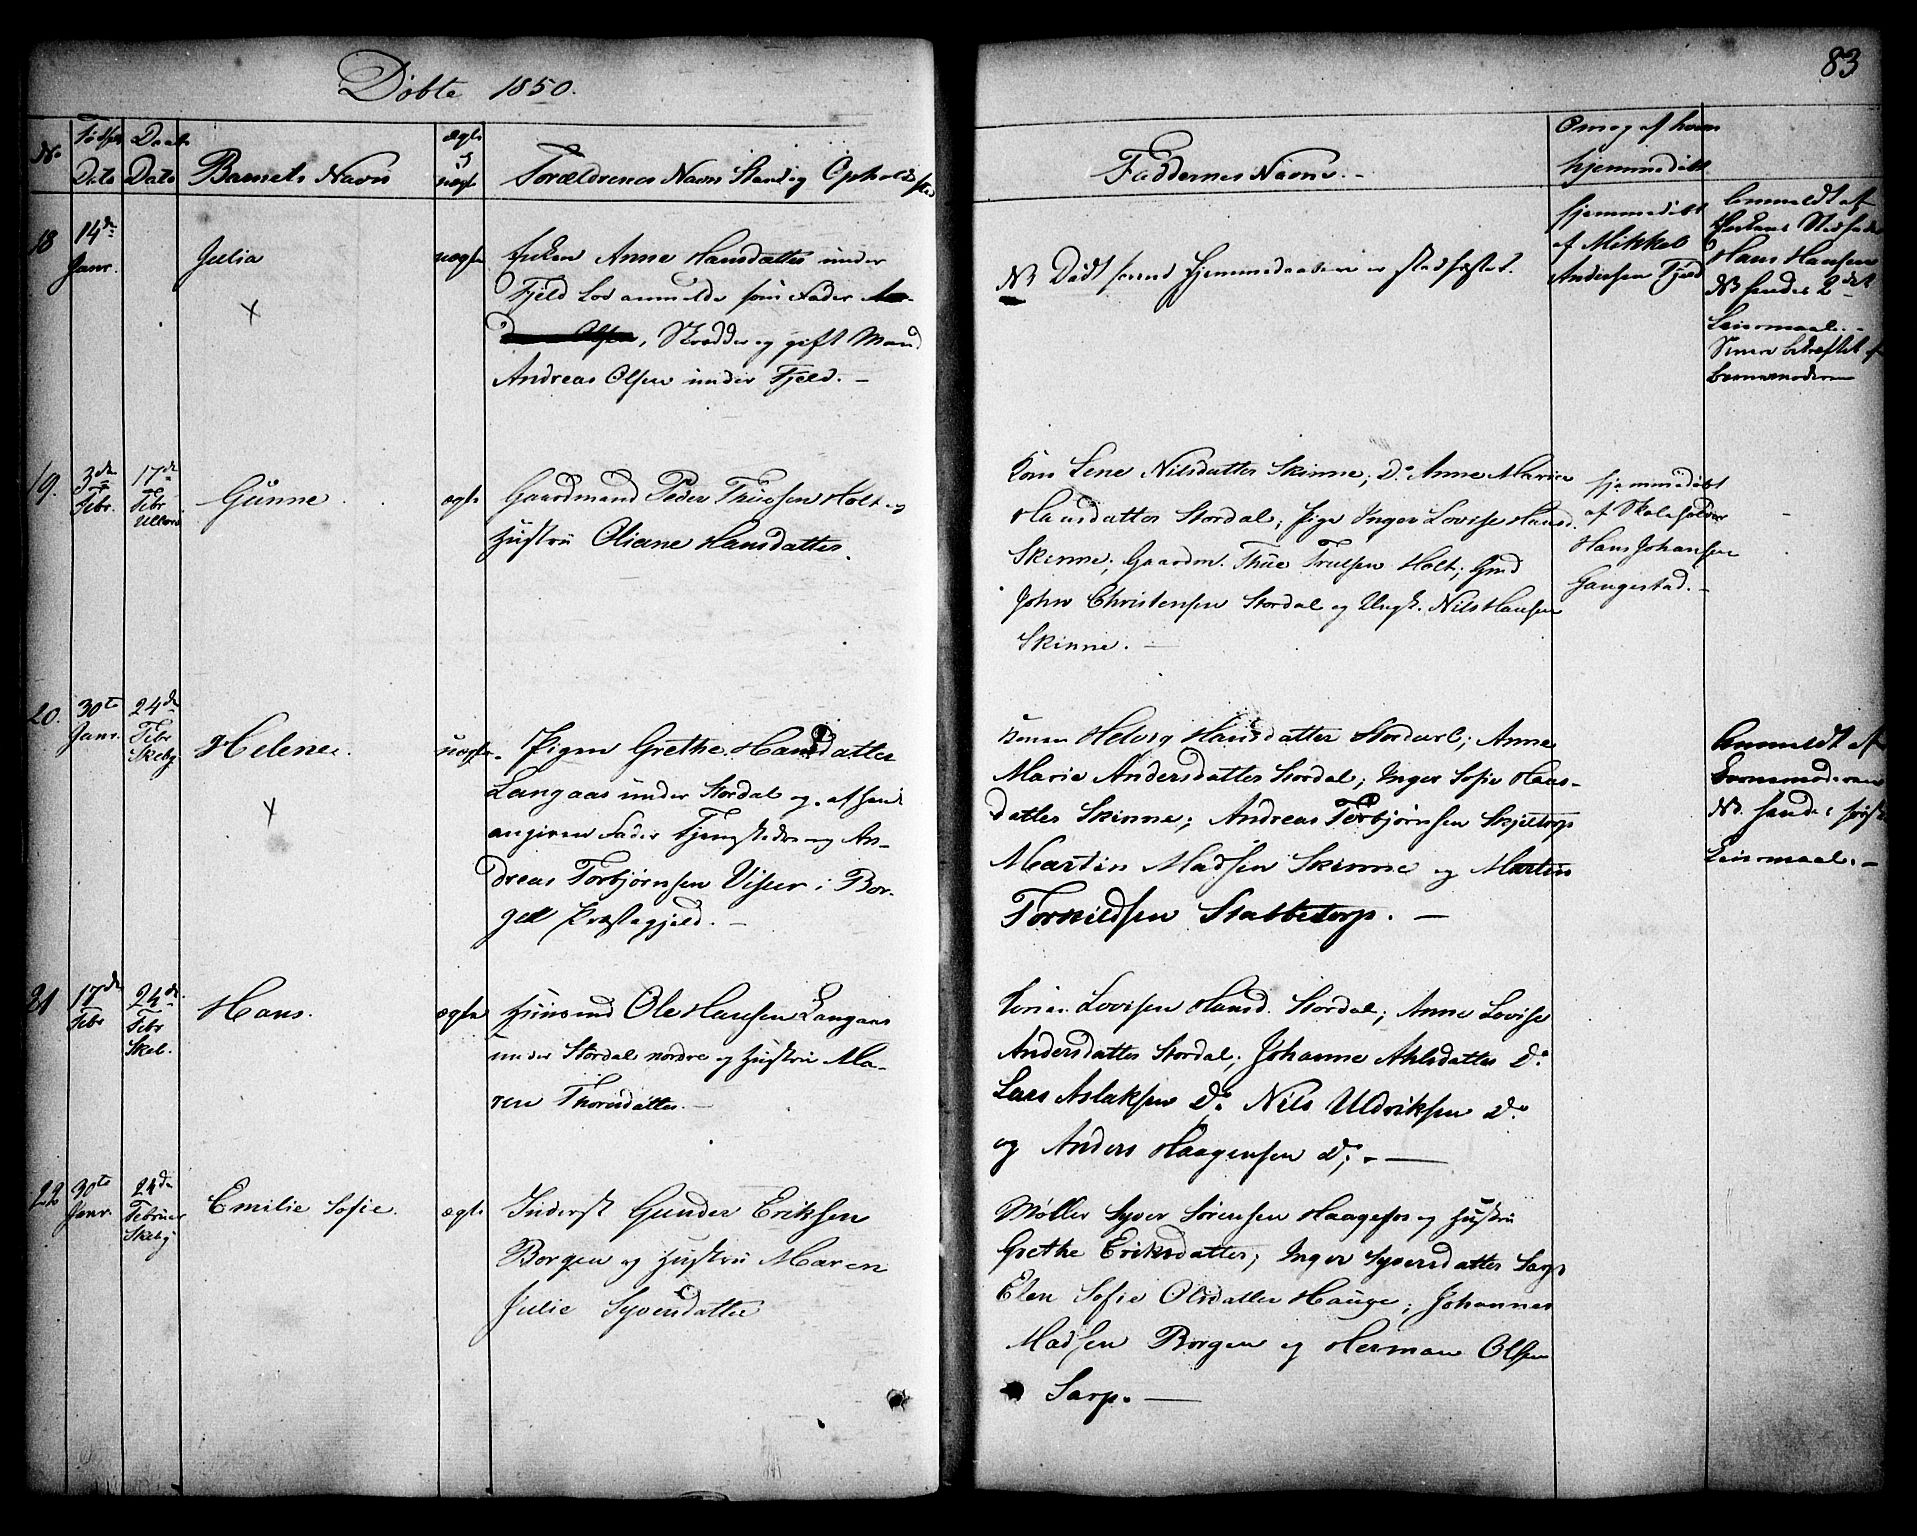 83
Döbte 1850.
No. Födsels Dato Daabs Dato Barnets Navn ægte e uægte Forældrenes Navn Stand og Opholdssted
Faddernes Navne. -
Om og af hvem
hjemmedöbt
18 14de Janr. Julia uægte Enken Anne Hansdatter under
Fjeld lod anmelde som Fader
Olsen, Skrædder og gift Mand
Andreas Olsen under Fjeld. -
NB Död forend Hjemmedaaben er stadfæstet.
hjemmedöbt
af Mikkel
Andersen Fjeld
Anmeldt af
Hans Hansen
NB hendes 2det
Leiermaal. -
Senere bekræftet af
barnemoderen
19. 3de Febr. 17de Febr Ullerö Günne ægte Gaardmand Peder Thuesen Holt og
Hustrü Oliane Hansdatter.
Kone Lene Nilsdatter Skinne; Do Anne Marie
Hansdatter Stordal; Pige Inger Lovise Hansd.
Skinne; Gaardm. Thue Truelsen Holt; Gmd
John Christensen Stordal og Ungk. Nils Hansen
Skinne. -
hjemmedöbt
af Skoleholder
Hans Johansen
Gangestad. -
20. 30te Janr. 24de Febr Skeby Helene. uægte. Pigen Grethe Hansdatter
Langaas under Stordal og af hende
angiven Fader Tjenestedreng An-
dreas Torbjørnsen Visür i Bor-
ge Præstegjeld. -
Konen Helvig Hansdatter Stordal; Anne
Marie Andersdatter Stordal; Inger Sofie Hans-
datter Skinne; Andreas Torbjørnsen Skjeltorp
Martin Madsen Skinne og Martin
Torkildsen Stabbetorp. -
Anmeldt af
Barnemoderen
NB. hendes første
Leiermaal. -
21 17de Febr 24de Febr Skeb. Hans. ægte Huusmd Ole Hansen Langaas
under Stordal nordre og Hustrü Ma-
ren Thorsdatter. -
Lovisen Hansd. Stordal; Anne Lovise
Andersdatter Stordal; Johanne Ahlsdatter Do
Lars Aslaksen Do Nils Uldriksen Do
og Anders Haagensen Do. -
22 30te Janr. 24de Februar Skeby Emilie Sofie. ægte Inderst Gunder Eriksen
Borgen og Hustrü Maren
Julie Syversdatter
Møller Syver Sörensen Haagefos og Hustrü
Grethe Eriksdatter; Inger Syversdatter Sarp
Elen Sofie Olsdatter Hauge; Johannes
Madsen Borgen og Herman Olsen
Sarp. -